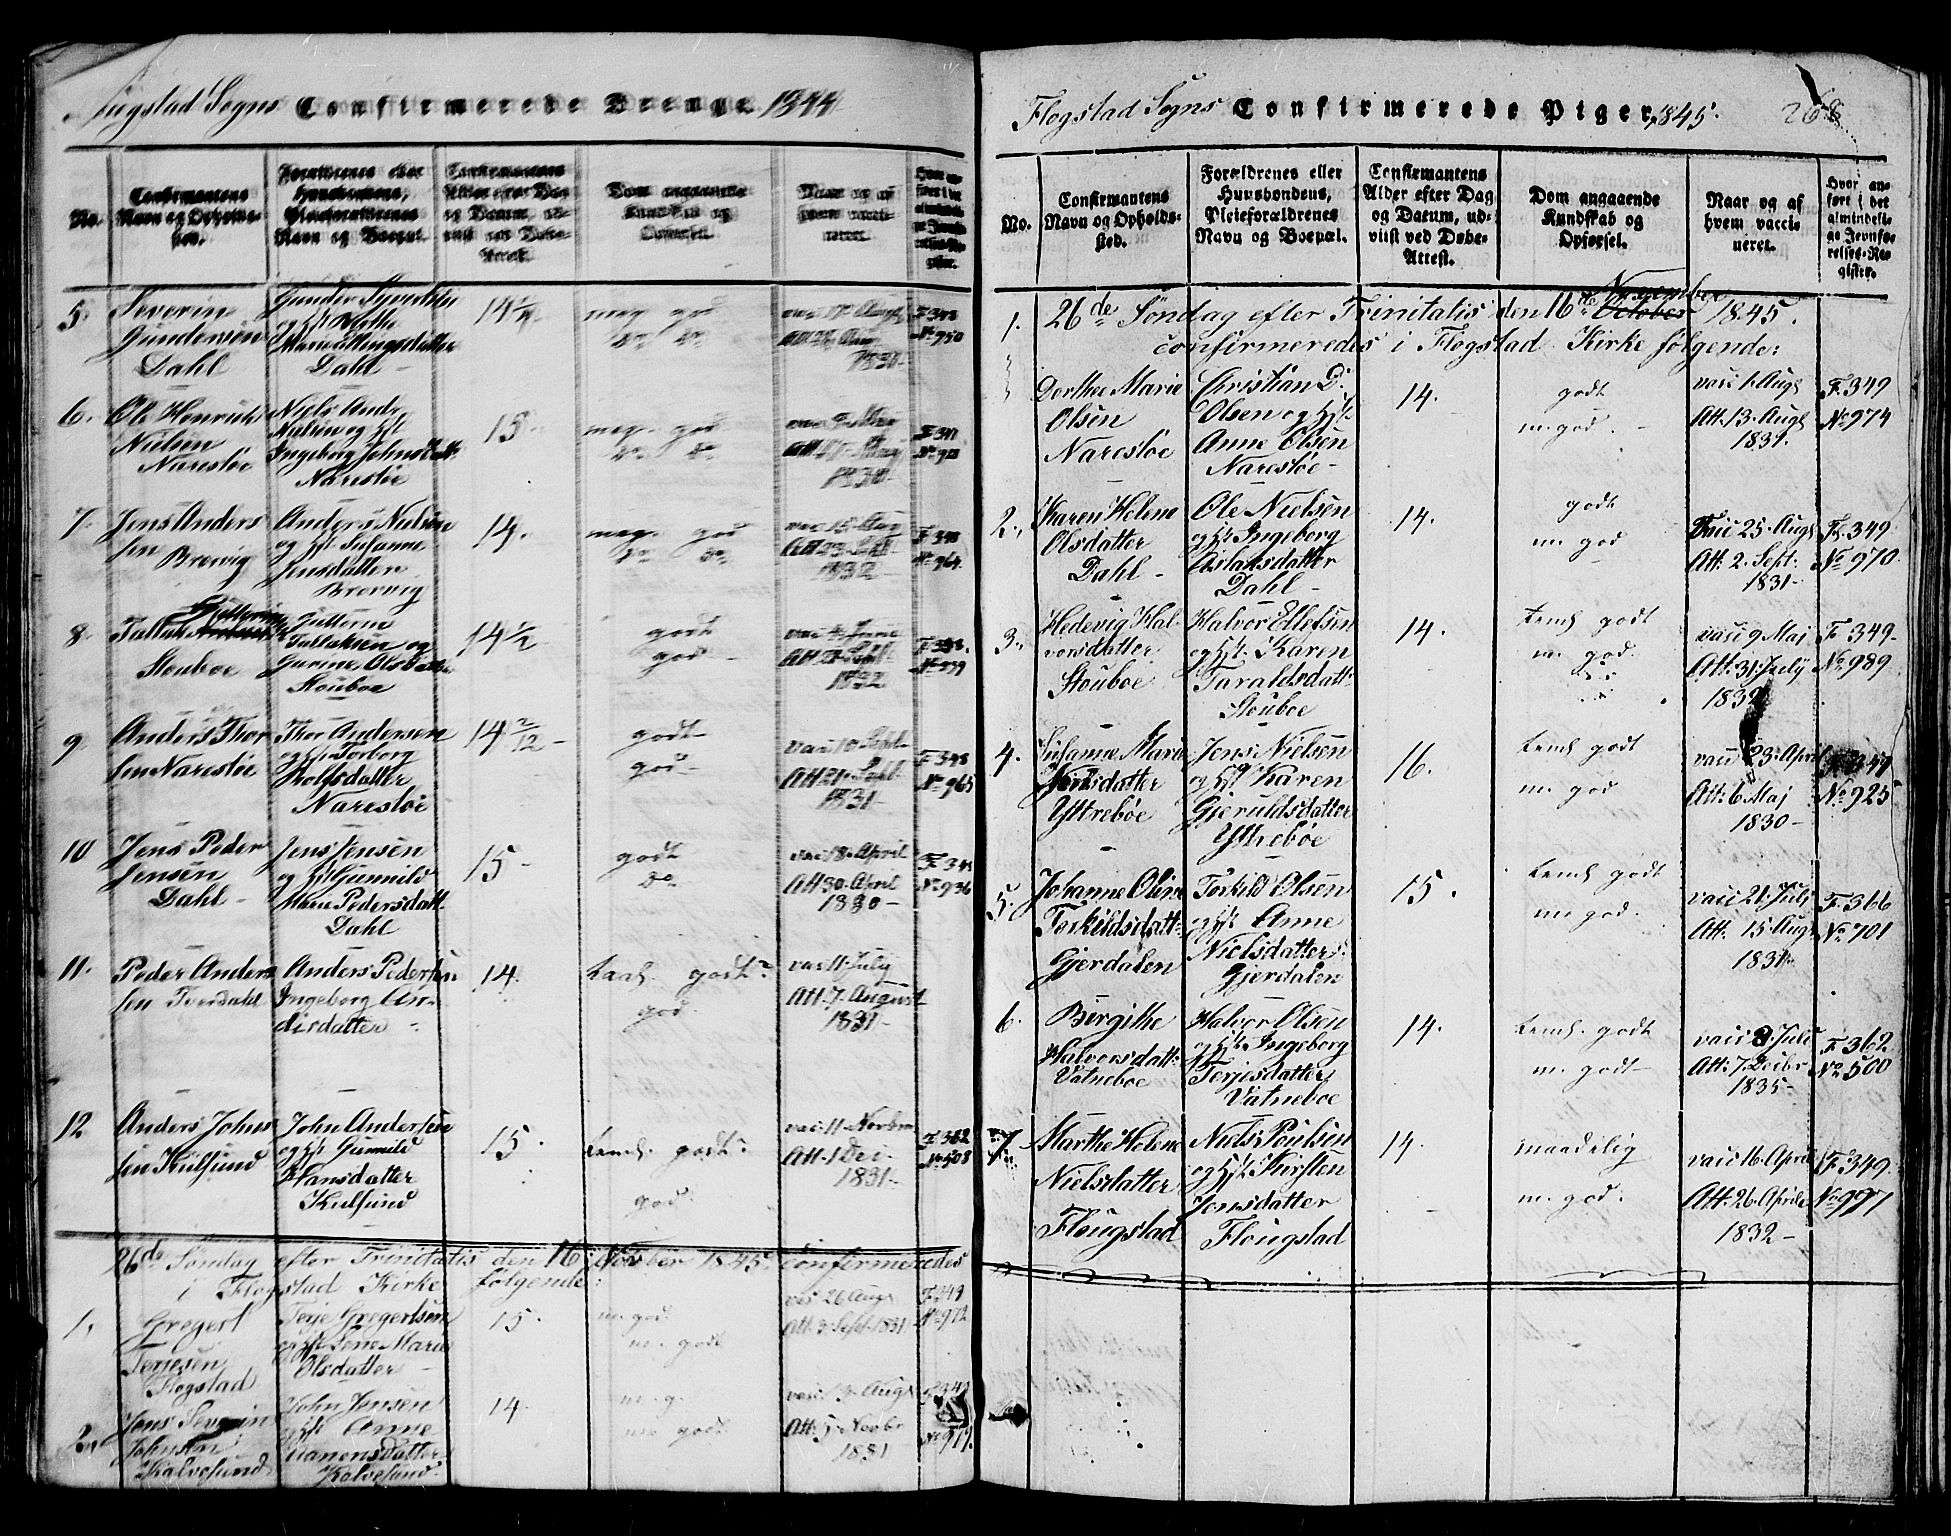 Flugstad Sogns Confirmerede Drenge 1844
No.
Confirmantens Navn og Opholdssted.
Forældrenes eller Huusbondens, Pleieforældrenes Navn og Boepæl.
Confirmantens Alder efter Dag og Datum, udviist ved Døbe-Attest.
Dom angaaende Kundskab og Opførsel.
Naar og af hvem vaccineret.
Hvor anført i det almindelige Jevnførelses-Register.
5. Severin Gundersen Dahl
Gunder Syvertsen og Hst
Dahl
14 1/4
meg god
do do
vac 17 Aug
1830
F 348
No 950
6. Ole Henrik Nielsen Narestøe
Niels Andr. Nielsen og Hst Ingeborg Johnsdatt. Narestøe
15.
meg. god
do do
1830
7. Jens Andersen Brevig
Anders Nielsen og Hst Susanne Jensdatter Brevvig
14.
meg god
do do
vac 15 Aug
1832
F 348
No 964
8. Tallak Guttormsen Stouboe
Guttorm Tallaksen og Gurine Olsdatter Stouboe
14 1/2
godt
god
vac 4 Juni
1832
9 Anders Thorsen Narestøe
Thor Andersen og Hst Torborg Rolfsdatter Narestøe
14 2/12
godt
god
vac 10 Sept.
Att 21 Sept.
1831
F 348
No 965
10 Jens Peder Jensen Dahl
Jens Jensen og Hst Gunnild Marie Pedersdatt. Dahl
15
godt
do
vac 18 April
Att 30 April
1830
No 936
11. Peder Andersen Tverdahl
Anders Pedersen Ingeborg Andersdatter
14.
godt
god.
vac 11 July
Att 7 August
1831
12 Anders Johnsen Kulfsund
John Andersen og Hst Gunnild Hansdatter Kulfsund
15.
teml. godt
god
vac 11 Novbr
Att 1 Dec.
1831
F 362
No 508
26de Søndag efter Trinitatis den 16 November 1845 confirmeredes
i Flogstad Kirke følgende:
1, Gregert Terjesen Flogstad
Terje Gregertsen og Hst Lene Marie Olsdatter
15.
m. god.
m. godt
vac 26 Aug
Att 3 Sept 1831
F 349
No 972
2. Jens Severin Johnsen Kalvesund
John Jensen og Hst Anne Kalvesund
14.
m. g.
m. godt
vac 13 Aug
Att 5 Novbr
1831
F 349
Flogstad Sogns Confirmerede Piger, 1845.
268
No.
Confirmantens Navn og Opholdssted.
Forældrenes eller Huusbondens, Pleieforældrenes Navn og Boepæl.
Confirmantens Alder efter Dag og Datum, udviist ved Døbe-Attest.
Dom angaaende Kundskab og Opførsel.
Naar og af hvem vaccineret.
Hvor anført i det almindelige Jevnførelses-Register.
November
26de Søndag efter Trinitatis den 16de October 1845.
confirmeredes i Flogstad Kirke følgende:
1. Dorthe Marie Olsen Narestøe
Christian D. Olsen og Hst. Anne Olsen Narestøe
14.
godt
m. god.
vac 1 Aug
Att. 13. Aug
1831.
F. 349
No 974
2. Karen Helene Olsdatter Dahl
Ole Nielsen og Hst Ingeborg Eistansdatter Dahl
14.
godt
m. god
Vac 25. Aug
Att. 2. Sept.
1831
F. 349
No 970
3. Hedevig Halvorsdatter Stouboe
Halvor Ellefsen og Hst. Karen Taraldsdatt. Stouboe
14.
teml godt
m. god.
vac 9 Maj
Att. 31 July
1832
F 349
No 989
4. Susanne Marie Jensdatter Yttrebøe
Jens Nielsen og Hst Karen Gjeruldsdatter Yttrebøe
16.
teml godt
m. god
vac 23 April
Att: 6 Maj
1830
F 347
No 925
5. Johanne Oline Torkildsdatt. Gjerdalen
Torkild Olsen og Hst Anne Nielsdatter Gjerdalen
15.
teml godt
m. god.
vac 21. July
Att. 15 Aug
1831
F. 366
No 701
6. Birgithe Halvorsdatt. Vatneboe
Halvor Olsen og Hst Ingeborg Terjesdatter Vatneboe
14.
teml. godt
m. godt
vac 8 Juli
Att. 7 Decbr
1835
F 362
No 500
7. Marthe Helene Nielsdatter Flougstad
Niels Poulsen og Hst Kirsten Jensdatter Flougstad
14.
maadelig
m. god.
vac 16 April
Att 26 April
1832
F. 349
No 997